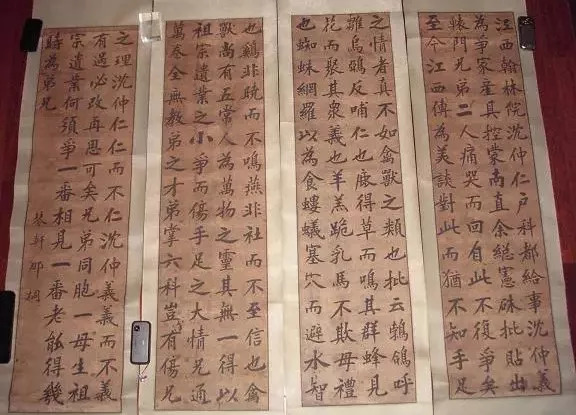 江西翰林院沈仲仁戶科都給事沈仲義
為爭家產具控蒙南直余総憲硃批貼出
轅門兄弟二人痛哭而回自此不復爭矣
至今江西傳為美談對此而猶不知手足
之情者真不如禽獸之類也批云鶺鴒呼
雛烏鴉反哺仁也鹿得草而鳴其群蜂見
花而聚其衆義也羊羔跪乳馬不欺母禮
也蜘蛛網羅以為食螻蟻塞穴而避水智
也鷄非曉而不鳴燕非社而不至信也禽
獸尚有五常人為萬物之靈其無一得以
祖宗遺業之小爭而傷手足之大情兄通
萬卷全無教弟之才弟掌六科豈有傷兄
之理沈仲仁仁而不仁沈仲義義而不義
有過必改再思可矣兄弟同胞一母生祖
宗遺業何須爭一番相見一番老能得幾
時為弟兄
琴軒那桐